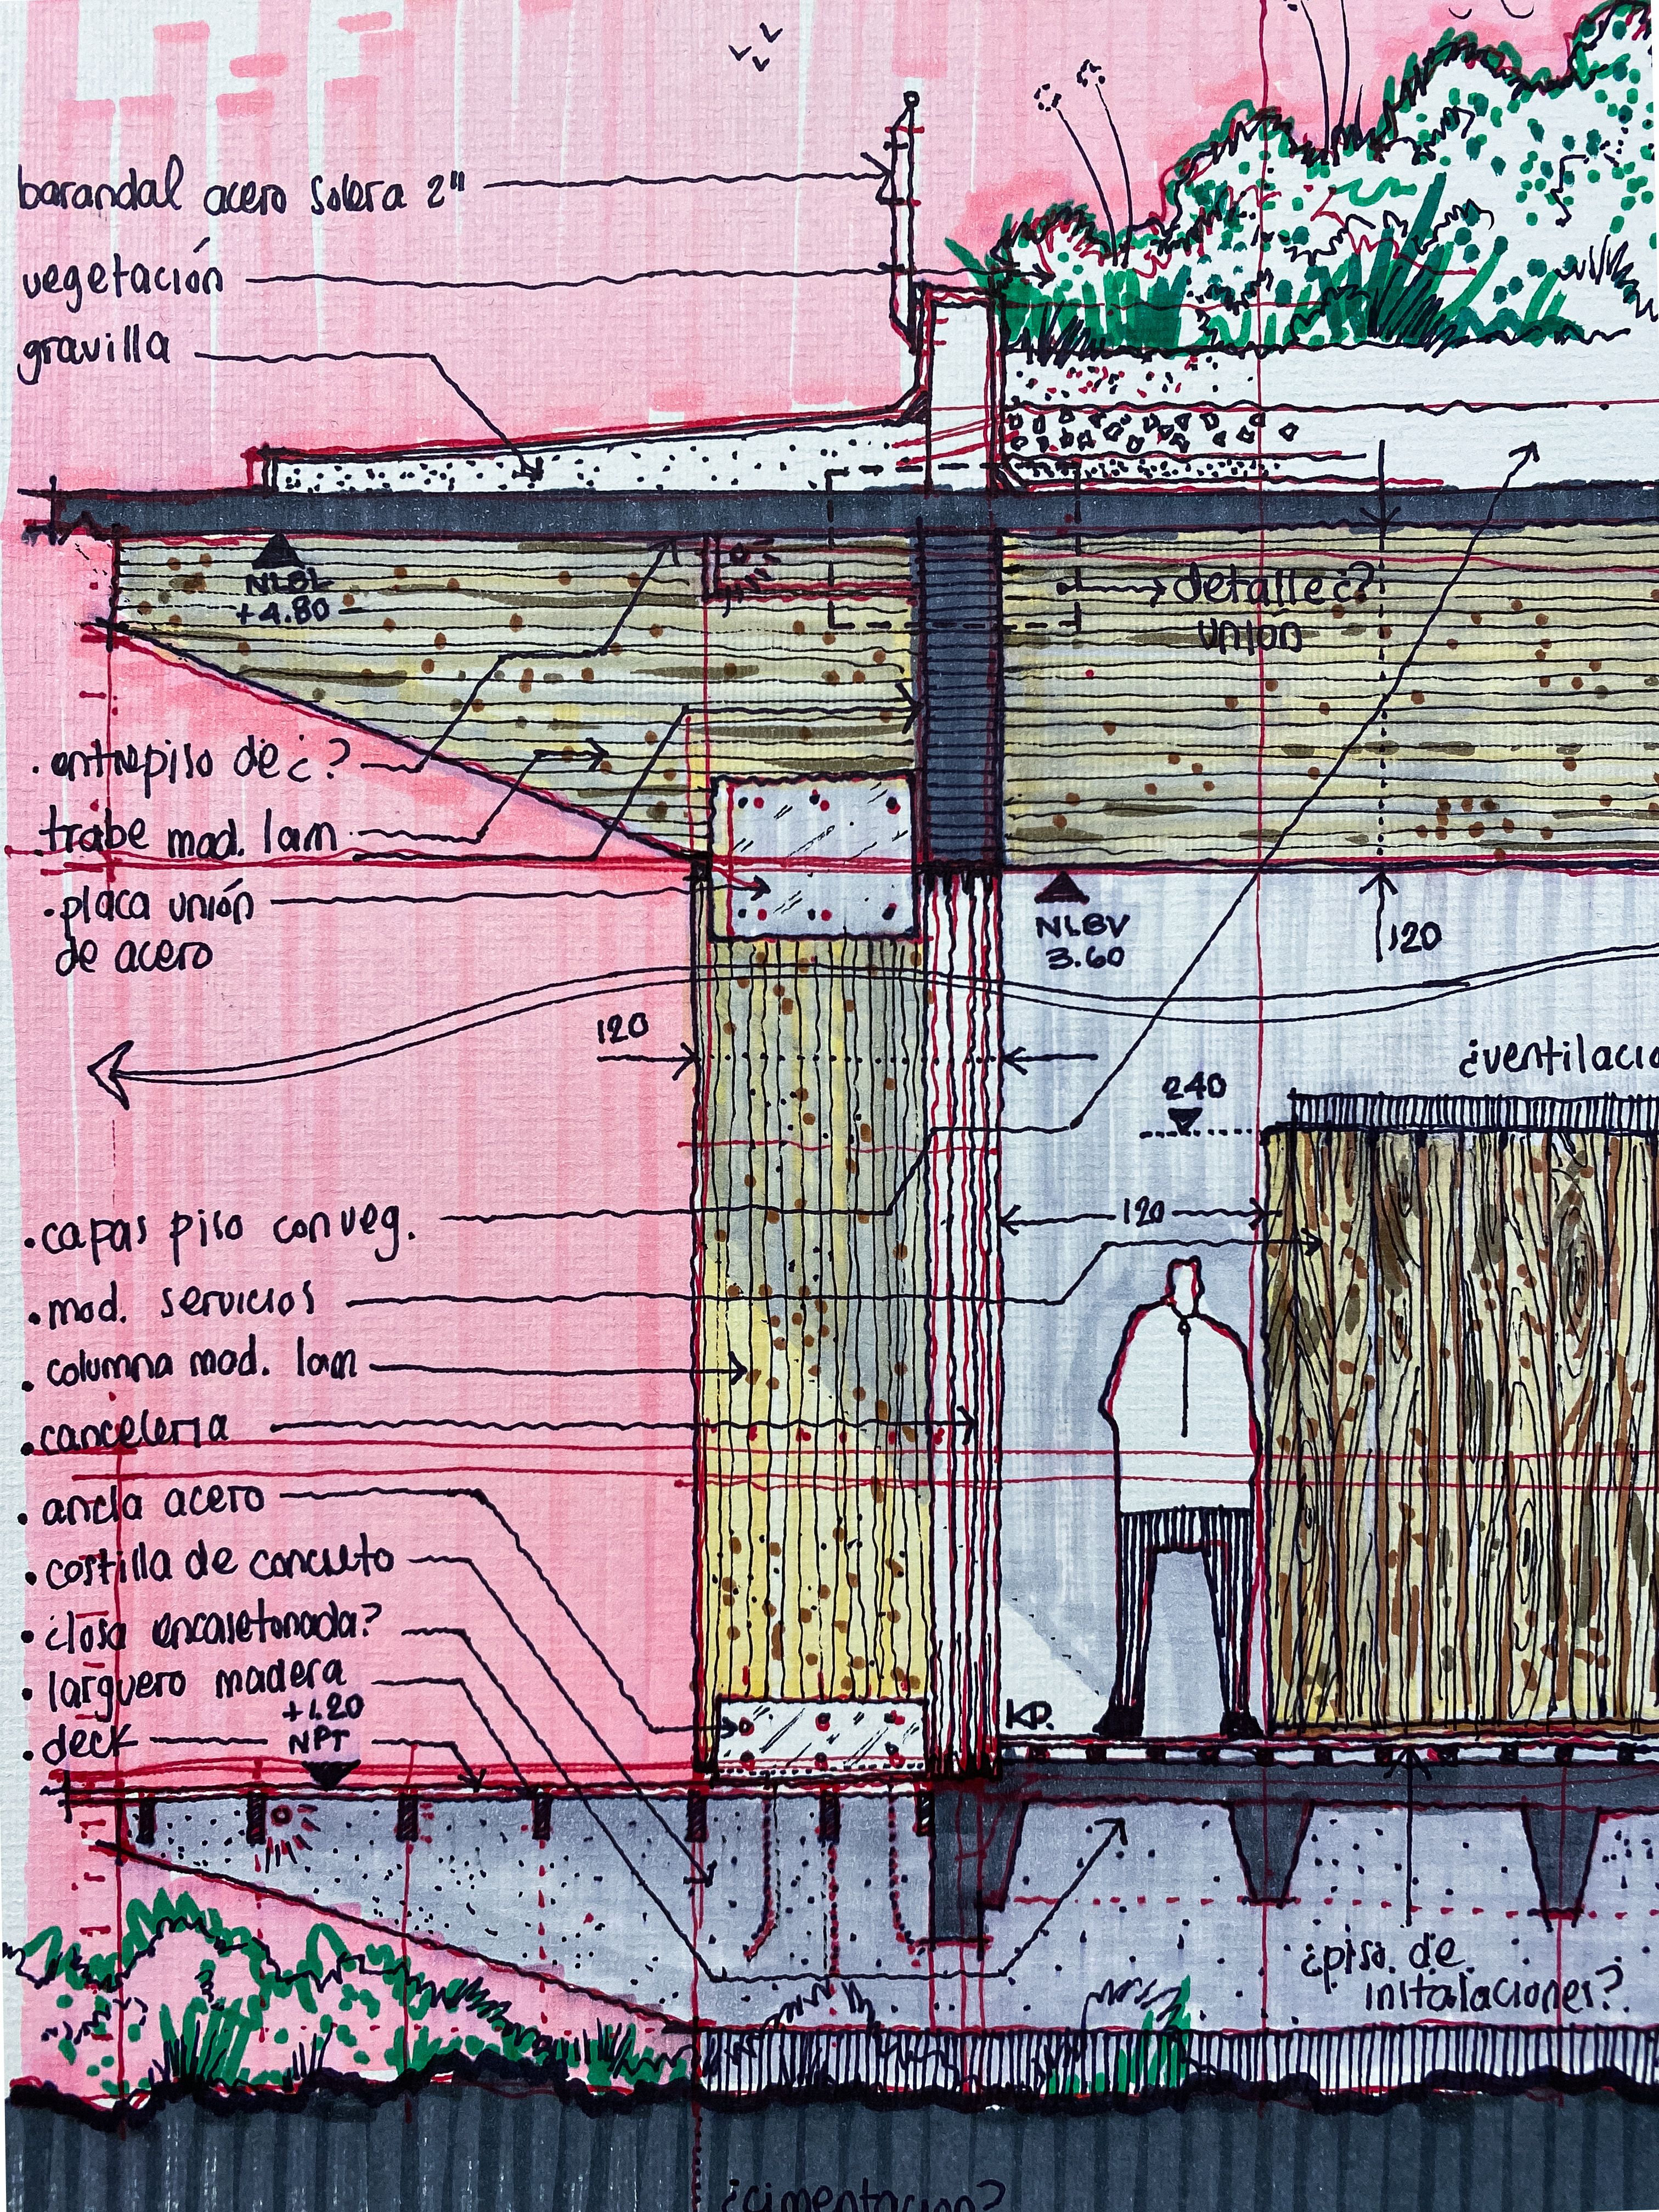 barandal acero solera 2"
vegetación
gravilla
NLBL
+4.80
detalle ¿?
union
. entrepiso de ¿?
trabe mad. lam
. placa unión
de acero
NLBV
3.60
120
120
¿ventilacio
240
120
. capas piso con veg.
. mod. servicios
. columna mad. lam
. canceleria
. ancla acero
. costilla de concreto
. ¿losa encasetonada?
. larguero madera
+1.20
. deck
NPT
KD.
¿piso de
instalaciones?
¿cimentacion?